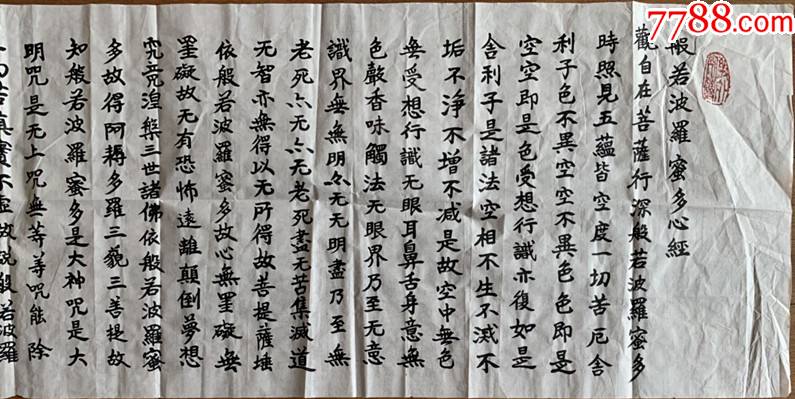 7788.com
中国收藏热线
般若波羅蜜多心經
觀自在菩薩行深般若波羅蜜多
時照見五蘊皆空度一切苦厄舍
利子色不異空空不異色色即是
空空即是色受想行識亦復如是
舍利子是諸法空相不生不滅不
垢不淨不增不减是故空中無色
無受想行識无眼耳鼻舌身意無
色聲香味觸法无眼界乃至无意
識界無無明亦无无明盡乃至無
老死亦无亦无老死盡无苦集滅道
无智亦無得以无所得故菩提薩埵
依般若波羅蜜多故心無罣礙無
罣礙故无有恐怖遠離顛倒夢想
究竟涅槃三世諸佛依般若波羅蜜
多故得阿耨多羅三藐三菩提故
知般若波羅蜜多是大神咒是大
明咒是无上咒無等等咒能除
苦真實不虛故說般若波羅